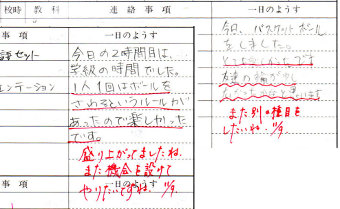 校時 教科 連絡事項 一日のようす
事項 一日のようす
セット
ンテーション
今日の2時間目は、
学級の時間でした。
1人1回はボールを
さわるというルールが
あったので楽しかった
です。
盛り上がってましたね。
また機会を設けて
やりたいですね。11/9.
事項 一日のようす
今日、バスケットボール
をしました。
とても楽しかったです
また別の種目を
したいね。11/9.